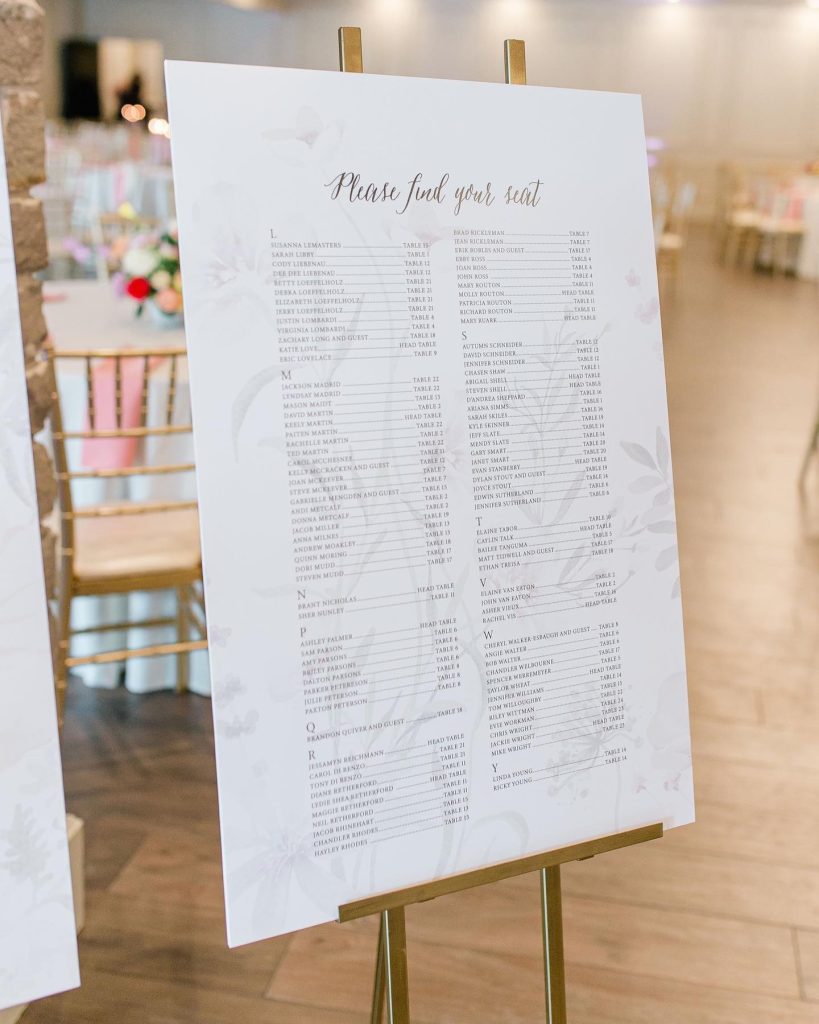 Please find your seat
L
SUSANNA LEMASTERS TABLE 15
SARAH LIBBY TABLE 1
CODY LIEBENAU TABLE 12
DEE DEE LIEBENAU TABLE 12
BETTY LOEFFELHOLZ TABLE 21
DEBRA LOEFFELHOLZ TABLE 21
ELIZABETH LOEFFELHOLZ TABLE 21
JERRY LOEFFELHOLZ TABLE 21
JUSTIN LOMBARDI TABLE 4
VIRGINIA LOMBARDI TABLE 4
ZACHARY LONG AND GUEST TABLE 18
KATIE LOVE HEAD TABLE
ERIC LOVELACE TABLE 9
M
JACKSON MADRID TABLE 22
LYNDSAY MADRID TABLE 22
MASON MAIDT TABLE 13
DAVID MARTIN TABLE 2
KEELY MARTIN HEAD TABLE
PAITEN MARTIN TABLE 22
RACHELLE MARTIN TABLE 2
TED MARTIN TABLE 22
CAROL MCCHESNEY TABLE 11
KELLY MCCRACKEN AND GUEST TABLE 12
JOAN MCKEEVER TABLE 7
STEVE MCKEEVER TABLE 7
GABRIELLE MENGDEN AND GUEST TABLE 15
ANDI METCALF TABLE 2
DONNA METCALF TABLE 2
JACOB MILLER TABLE 19
ANNA MILNES TABLE 13
ANDREW MOAKLEY TABLE 18
QUINN MORING TABLE 18
DORI MUDD TABLE 17
STEVEN MUDD TABLE 17
N
BRANT NICHOLAS HEAD TABLE
SHER NUNLEY TABLE 11
P
ASHLEY PALMER HEAD TABLE
SAM PARSON TABLE 6
AMY PARSONS TABLE 6
BRILEY PARSONS TABLE 6
DALTON PARSONS TABLE 6
PARKER PETERESON TABLE 8
JULIE PETERSON TABLE 8
PAXTON PETERSON TABLE 8
Q
BRANDON QUIVER AND GUEST TABLE 18
R
JESSAMYN REICHMANN HEAD TABLE
CAROL DI RENZO TABLE 21
TONY DI RENZO TABLE 21
DIANE RETHERFORD TABLE 11
LYDIE SHEA RETHERFORD HEAD TABLE
MAGGIE RETHERFORD TABLE 11
NEIL RETHERFORD TABLE 11
JACOB RHINEHART TABLE 15
CHANDLER RHODES TABLE 13
HAYLEY RHODES TABLE 13
BRAD RICKLEMAN TABLE 7
JEAN RICKLEMAN TABLE 7
ERIK ROBLES AND GUEST TABLE 17
EBBY ROSS TABLE 4
JOAN ROSS TABLE 4
JOHN ROSS TABLE 4
MARY ROUTON TABLE 11
MOLLY ROUTON HEAD TABLE
PATRICIA ROUTON TABLE 11
RICHARD ROUTON TABLE 11
MARY RUARK HEAD TABLE
S
AUTUMN SCHNEIDER TABLE 12
DAVID SCHNEIDER TABLE 12
JENNIFER SCHNEIDER TABLE 12
CHASEN SHAW TABLE 1
ABIGAIL SHELL HEAD TABLE
STEVEN SHELL HEAD TABLE
D'ANDREA SHEPPARD TABLE 16
ARIANA SIMMS TABLE 1
SARAH SKILES TABLE 16
KYLE SKINNER TABLE 19
JEFF SLATE TABLE 14
MENDY SLATE TABLE 14
GARY SMART TABLE 20
JANET SMART TABLE 20
EVAN STANBERRY HEAD TABLE
DYLAN STOUT AND GUEST TABLE 19
JOYCE STOUT TABLE 14
EDWIN SUTHERLAND TABLE 6
JENNIFER SUTHERLAND TABLE 6
T
ELAINE TABOR TABLE 10
CAYLIN TALK HEAD TABLE
BAILEE TANGUMA TABLE 5
MATT TIDWELL AND GUEST TABLE 17
ETHAN TREISA TABLE 18
V
ELAINE VAN EATON TABLE 2
JOHN VAN EATON TABLE 2
ASHER VIEUX TABLE 16
RACHEL VIS HEAD TABLE
W
CHERYL WALKER-ESBAUGH AND GUEST TABLE 8
ANGIE WALTER TABLE 6
BOB WALTER TABLE 6
CHANDLER WELBOURNE TABLE 17
SPENCER WERREMEYER TABLE 5
TAYLOR WHEAT HEAD TABLE
JENNIFER WILLIAMS TABLE 14
TOM WILLOUGHBY TABLE 15
RILEY WITTMAN TABLE 22
EVIE WORKMAN TABLE 24
CHRIS WRIGHT TABLE 23
JACKIE WRIGHT HEAD TABLE
MIKE WRIGHT TABLE 23
Y
LINDA YOUNG TABLE 14
RICKY YOUNG TABLE 14